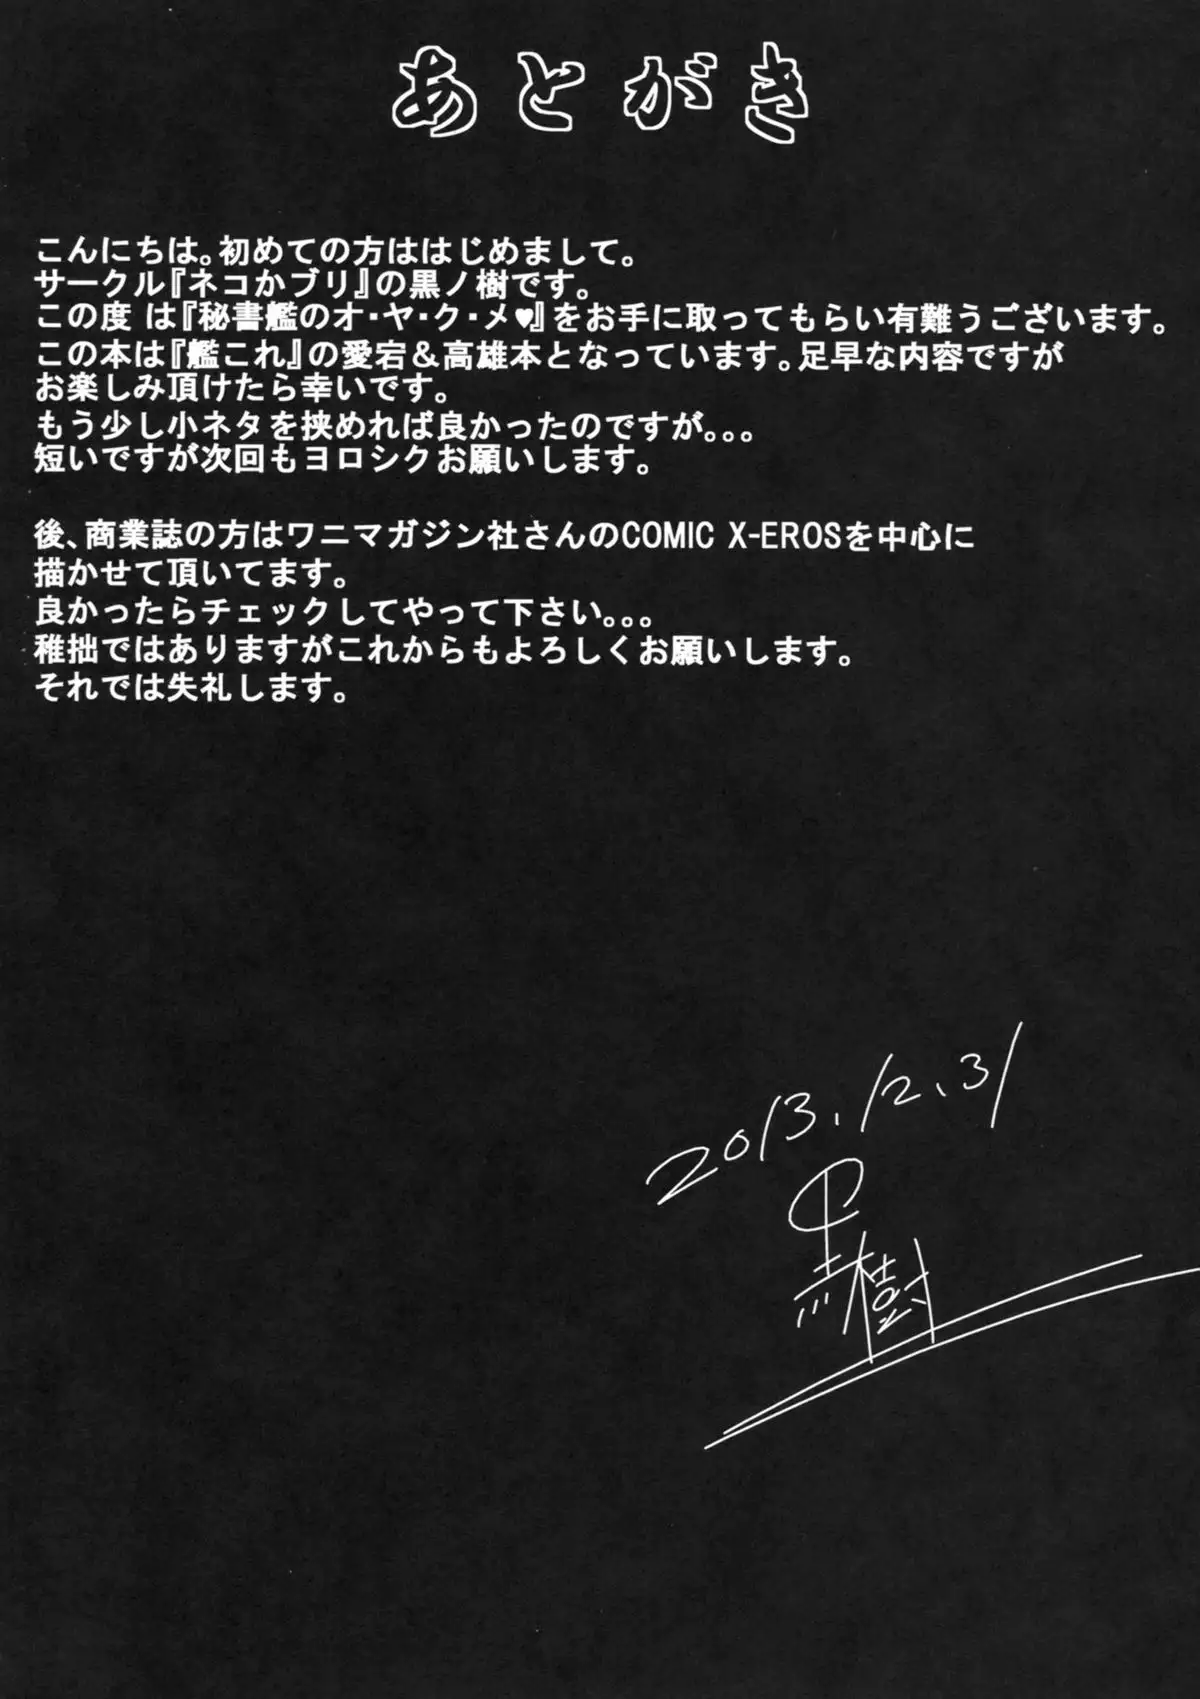 あとがき
こんにちは。初めての方ははじめまして。
サークル『ネコかブリ』の黒ノ樹です。
この度 は『秘書艦のオ・ヤ・ク・メ♥』をお手に取ってもらい有難うございます。
この本は『艦これ』の愛宕＆高雄本となっています。足早な内容ですが
お楽しみ頂けたら幸いです。
もう少し小ネタを挟めれば良かったのですが。。。
短いですが次回もヨロシクお願いします。
後、商業誌の方はワニマガジン社さんのCOMIC X-EROSを中心に
描かせて頂いてます。
良かったらチェックしてやって下さい。。。
稚拙ではありますがこれからもよろしくお願いします。
それでは失礼します。
2013.12.31
黒樹